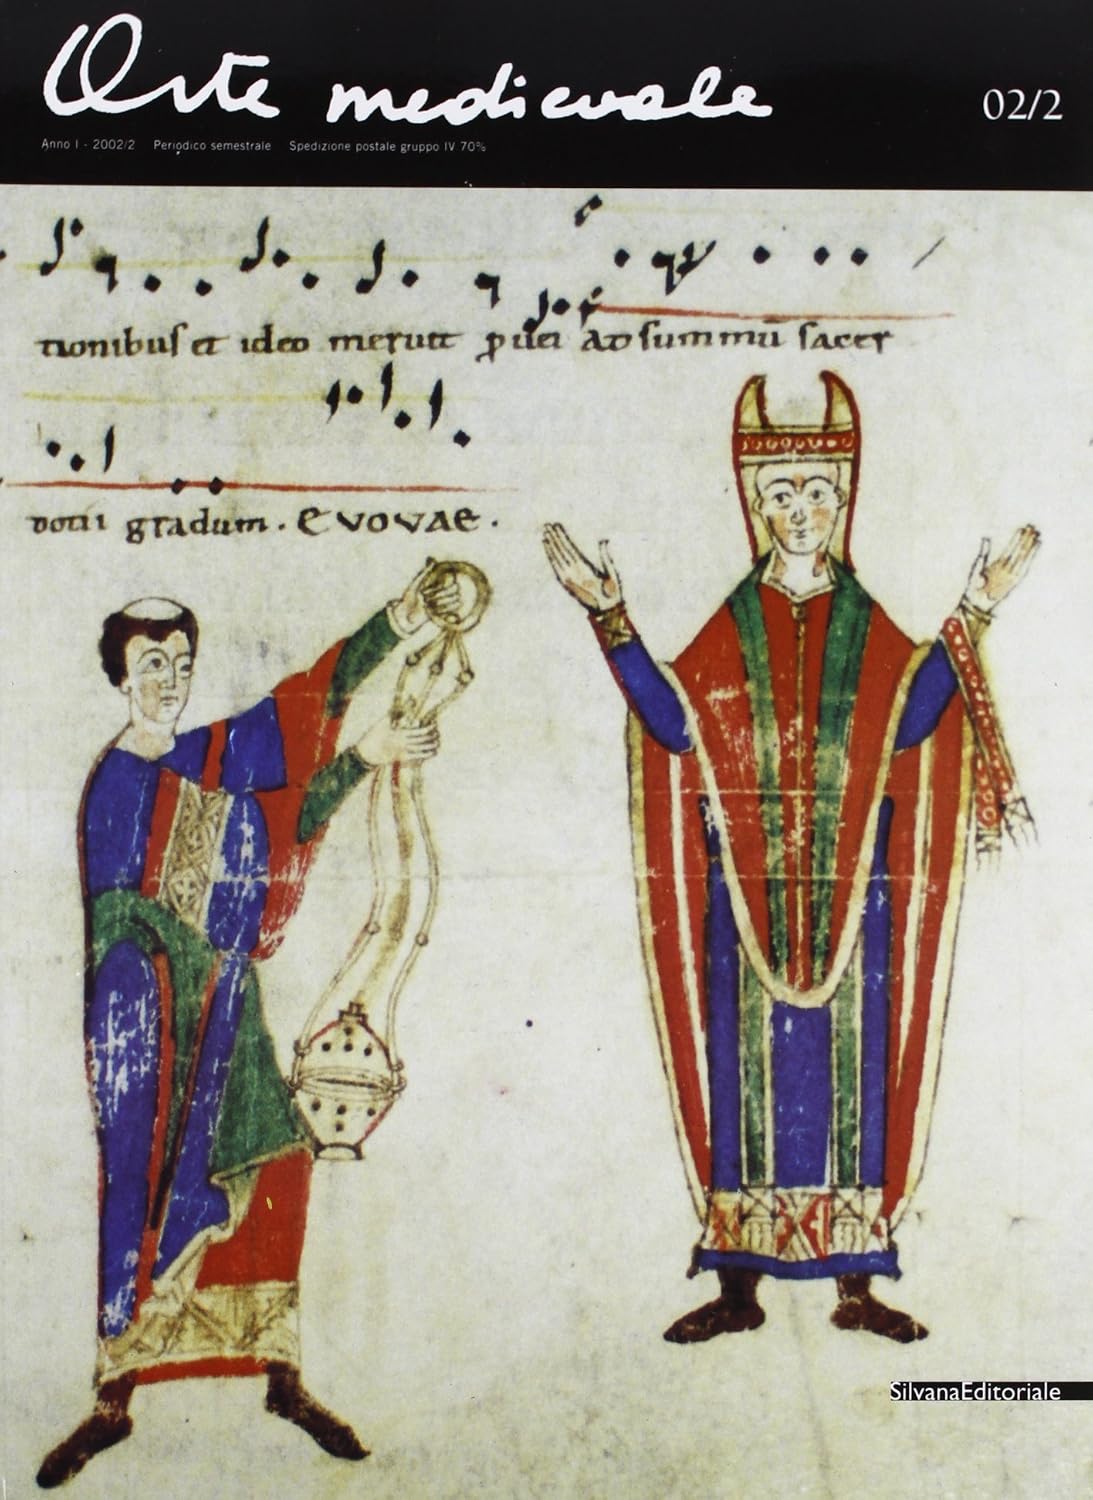 Arte medievale
02/2
Anno I - 2002/2 Periodico semestrale Spedizione postale gruppo IV 70%
tionibus et ideo merunt pvei ad summu sacer
dotii gradum. EVOVAE.
SilvanaEditoriale